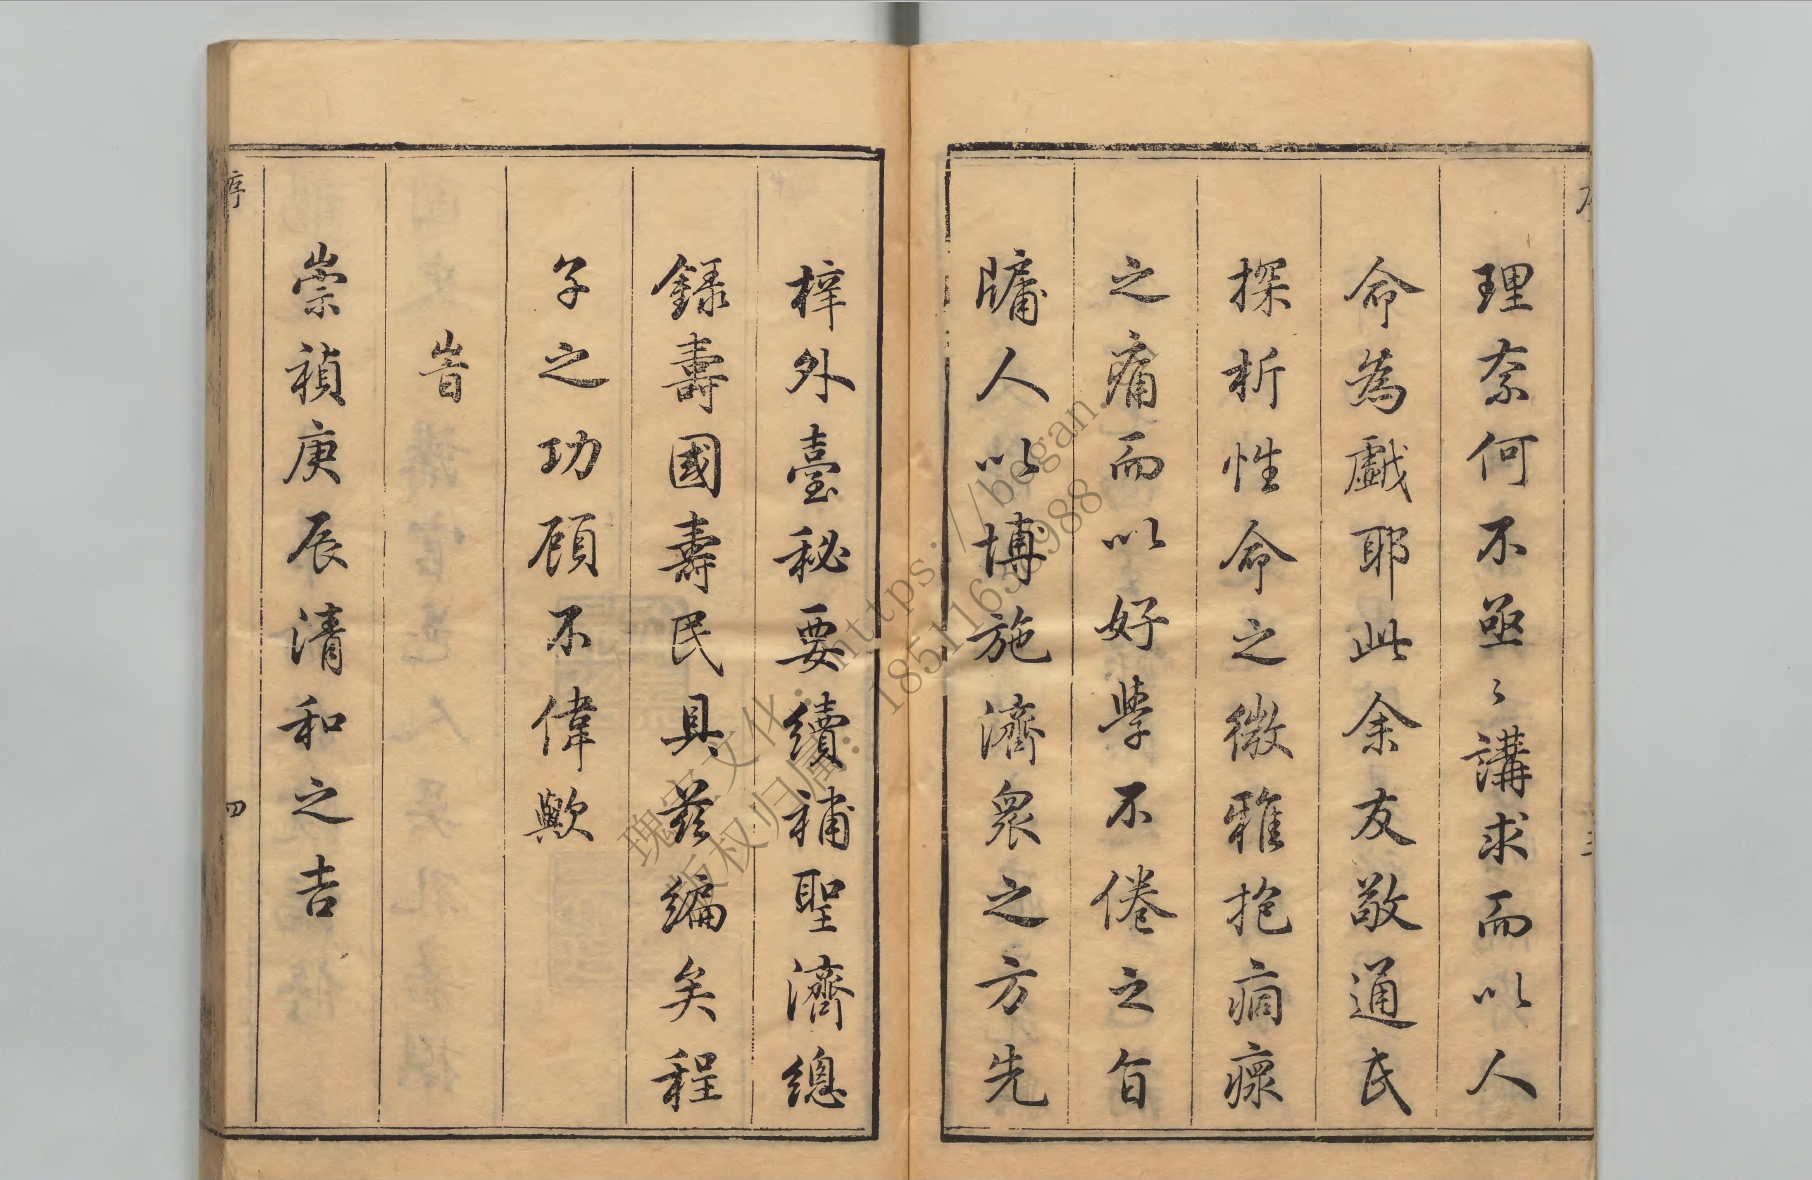 理奈何不亟〻講求而以人
命為戲耶此余友敬通氏
探析性命之微雅抱痌瘝
之痛而以好學不倦之自
牗人以博施濟衆之方先
梓外臺秘要續補聖濟總
錄壽國壽民具茲編矣程
子之功顧不偉歟
旹
崇禎庚辰清和之吉
序
四
瑰宝文化:https://began.
版权归属:18511655988